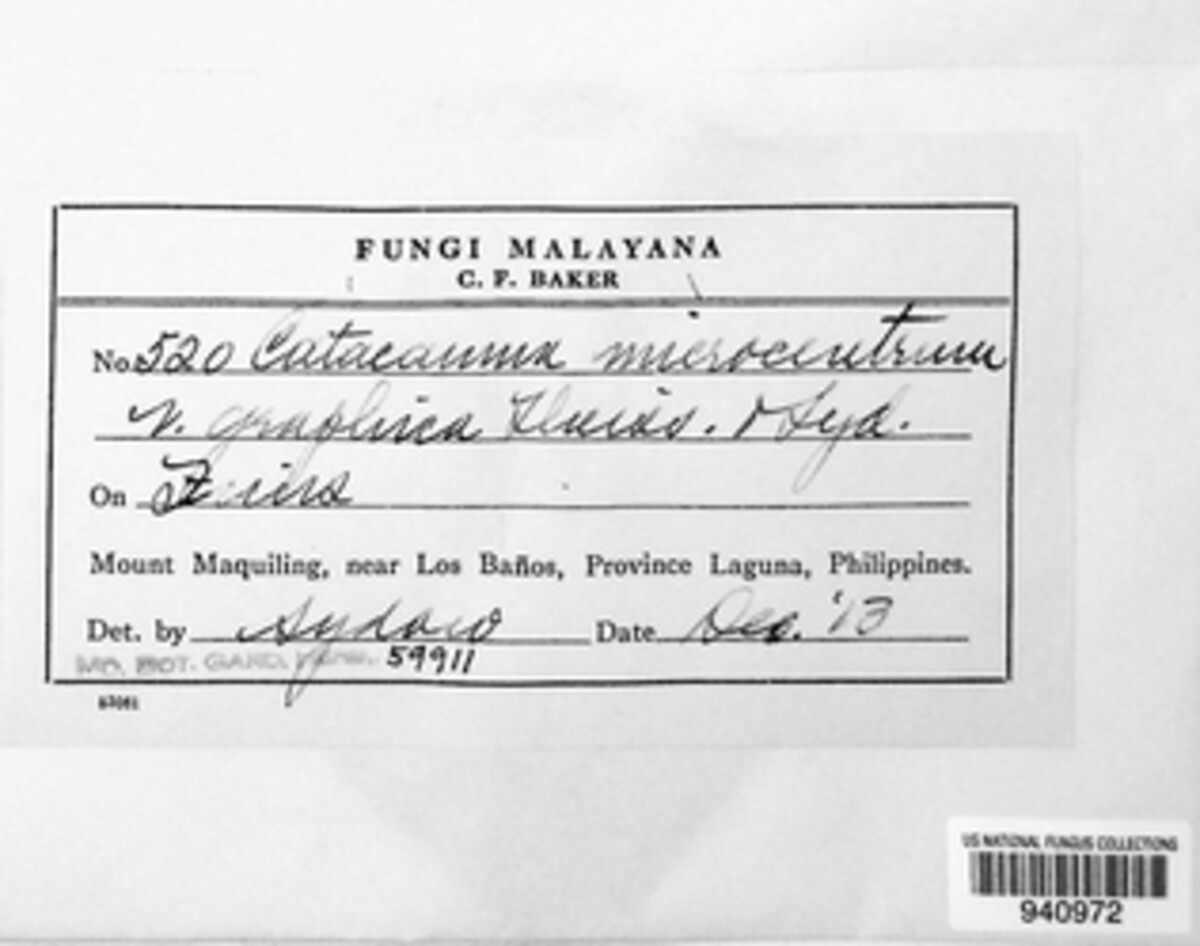 FUNGI MALAYANA
C. F. BAKER
No. 520 Catacauma microcentrum
v. graphica Theiss. & Syd.
On Ficus
Mount Maquiling, near Los Baños, Province Laguna, Philippines.
Det. by Sydow Date Dec. '13
MO. BOT. GARD. HERB. 59911
US NATIONAL FUNGUS COLLECTIONS
940972